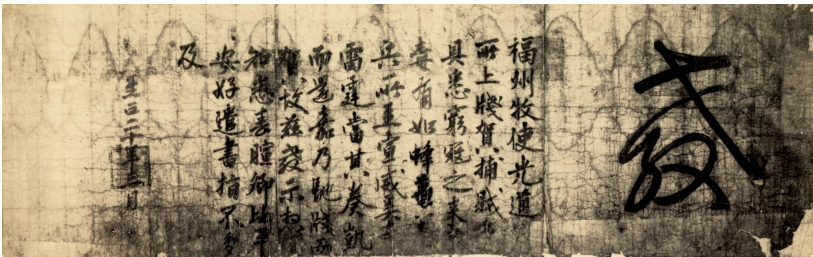 教
福州牧使光道
所上牋賀捕賊事
具悉窮寇之來
毒有如蜂蠆
兵所至宣威
雷霆當其奏凱
而還嘉乃馳牋而
賀故茲敎示想宜
知悉春暄卿比平
安好遣書指不多
及
至正二十年三月日